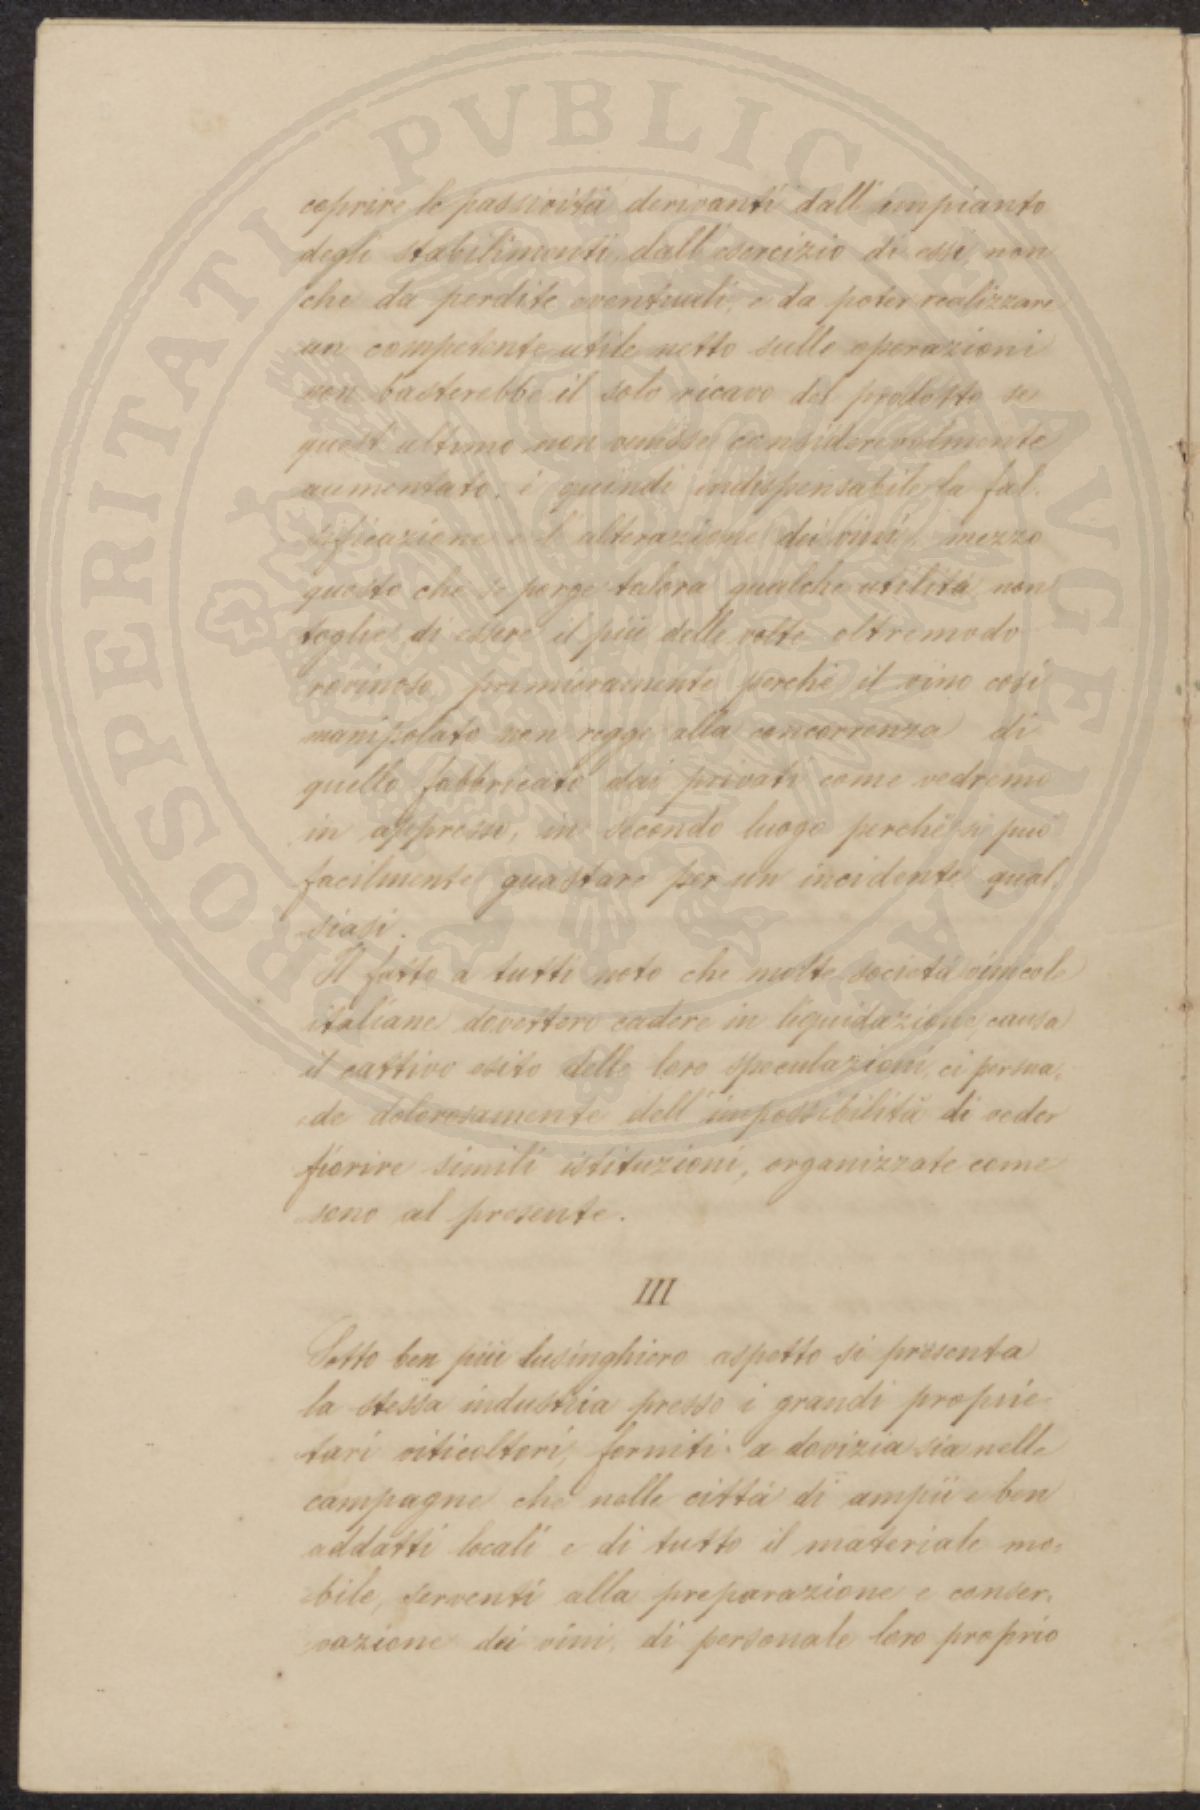 coprire le passività derivanti dall'impianto
degli stabilimenti, dall'esercizio di essi, non
che da perdite eventuali, e da poter realizzare
un competente utile netto sulle operazioni
non basterebbe il solo ricavo del prodotto se
quest'ultimo non venisse considerevolmente
aumentato; è quindi indispensabile la fal-
sificazione e l'alterazione dei vini, mezzo
questo che se porge talora qualche utilità, non
toglie di essere il più delle volte oltremodo
rovinoso, primieramente perchè il vino così
manipolato non regge alla concorrenza di
quello fabbricato dai privati come vedremo
in appresso, in secondo luogo perchè si può
facilmente guastare per un incidente qual-
siasi.
Il fatto a tutti noto che molte società vinicole
italiane dovettero cadere in liquidazione, causa
il cattivo esito delle loro speculazioni, ci persua-
de dolorosamente dell'impossibilità di veder
fiorire simili istituzioni, organizzate come
sono al presente.
III
Sotto ben più lusinghiero aspetto si presenta
la stessa industria presso i grandi proprie-
tari viticoltori, forniti a dovizia sia nelle
campagne che nelle città di ampii e ben
addatti locali e di tutto il materiale mo-
bile, serventi alla preparazione e conser-
vazione dei vini, di personale loro proprio
PROSPERITATI PVBLICAE AVGENDAE